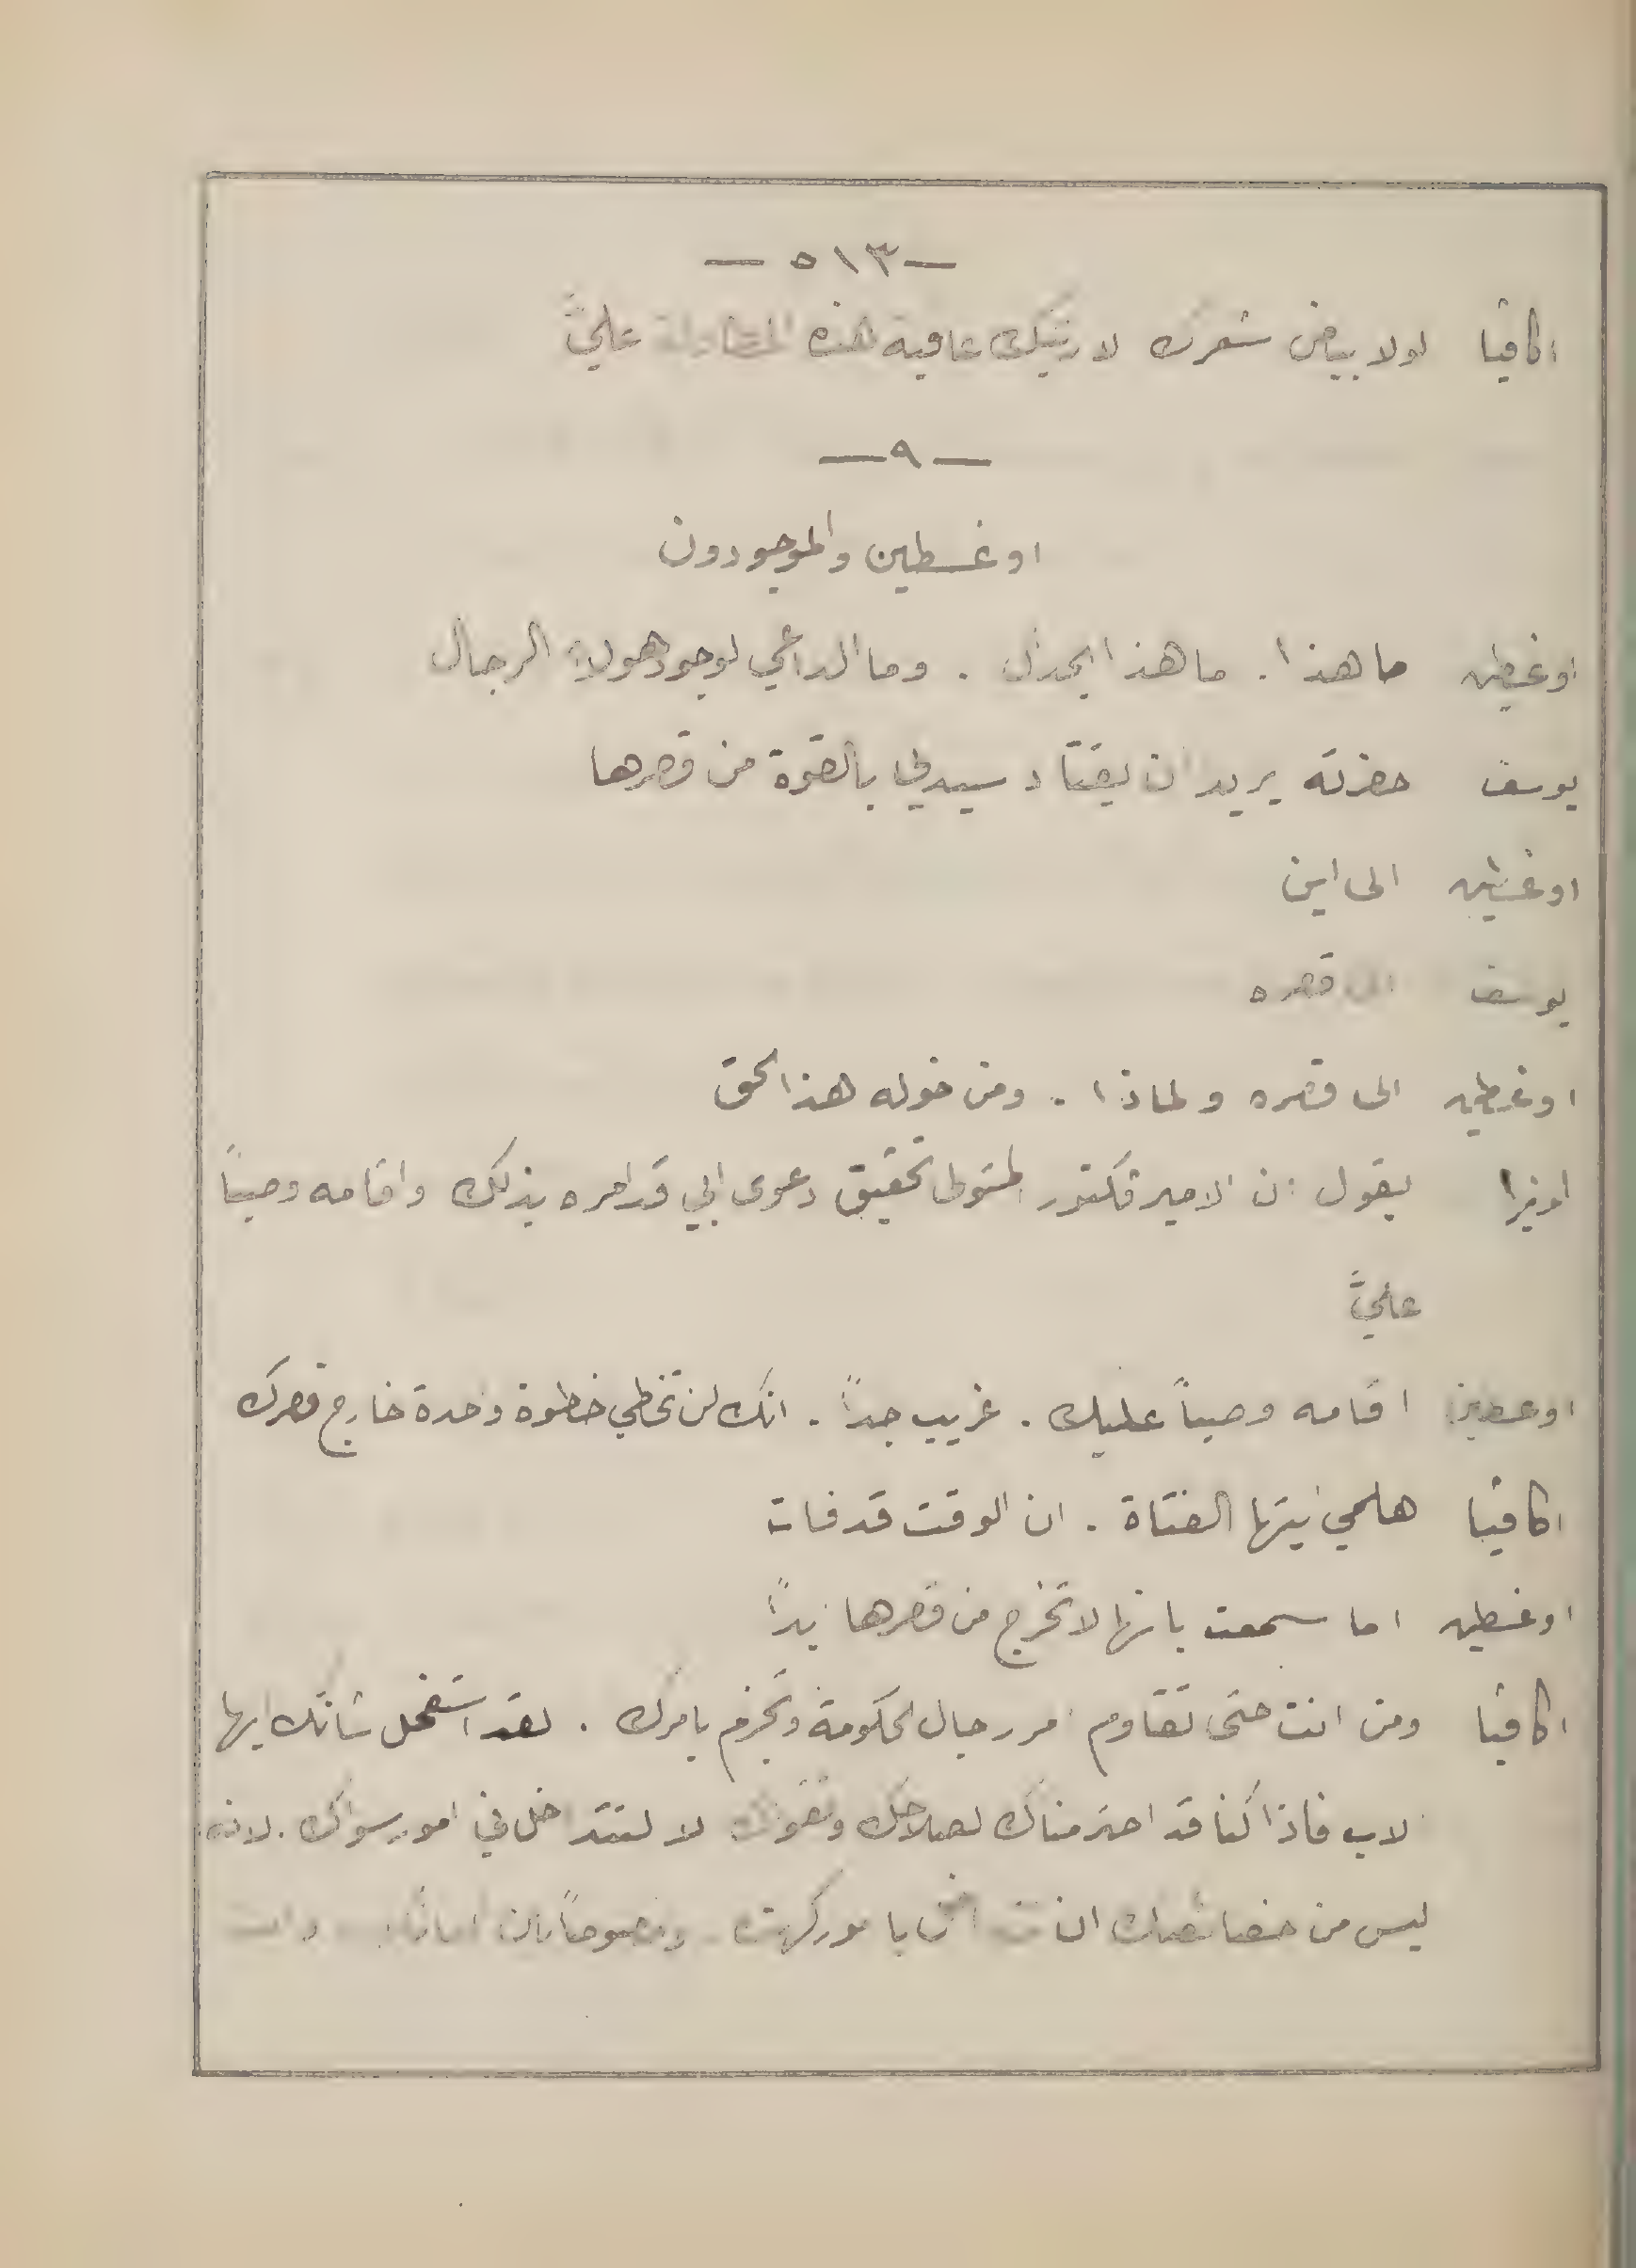 — ٥١٣ —
اكافيا لولا بياض شعرك لاريتك عاقبة هذه عليَّ
— ٩ —
اوغسطين والموجودون
اوغسطين ما هذا . ما هذا الجدال . وما الداعي لوجود هولاء الرجال
يوسف حضرته يريد ان يقتاد سيدتي بالقوة من قصرها
اوغسطين الى اين
يوسف الى قصره
اوغسطين الى قصره ولماذا . ومن خوله هذا الحق
اوفيرا يقول ان الامير فكتور المتولى تحقيق دعوى ابي قد امره بذلك واقامه وصياً
عليَّ
اوغسطين اقامه وصياً عليك . غريب جداً . انك لن تخطي خطوة واحدة خارج قصرك
اكافيا هلمي ايتها الفتاة . ان الوقت قد فات
اوغسطين اما سمعت بانها لا تخرج من قصرها ابداً
اكافيا ومن انت حتى تقاوم امر رجال الحكومة وتجزم بامرك . لقد استفحل شانك ايها
الاب فاذا كنا قد احترمناك لصلاحك وتقواك لا لتتداخل في امور سواك . لانه
ليس من خصائصك ان